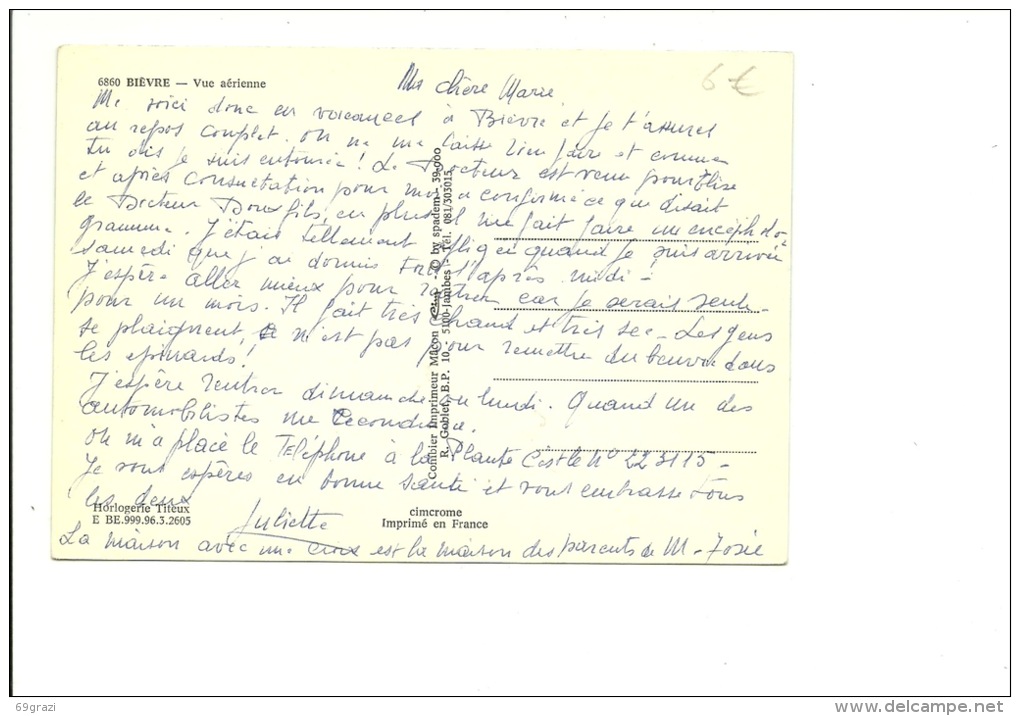 6860 BIÈVRE — Vue aérienne
6 €
Ma chère Marie
Me voici donc en vacances à Bièvre et je t'assure
au repos complet. on ne me laisse rien faire et comme
tu dis je suis entourée ! Le Docteur est venu pour Elise
et après consultation pour moi a confirmé ce que disait
le Docteur Doux fils, en plus il me fait faire un encéphalo-
gramme. J'étais tellement fatiguée quand je suis arrivée
samedi que j'ai dormis tout l'après-midi -
J'espère aller mieux pour rentrer car je serais seule
pour un mois. Il fait très chaud et très sec - Les gens
se plaignent, ce n'est pas pour remettre du beurre dans
les épinards !
J'espère rentrer dimanche ou lundi. Quand un des
automobilistes me reconduira.
On m'a placé le Téléphone à la Plante C'est le N° 223115 -
Je vous espères en bonne santé et vous embrasse tous
les deux
Juliette
Horlogerie Titeux
E BE.999.96.3.2605
cimcrome
Imprimé en France
La maison avec une croix est la maison des parents de M - Josée
Combier Imprimeur Mâcon Cim - © by spadem - 39.000
R. Goblet, B.P. 10 - 5100-Jambes - Tél. 081/303015
69grazi